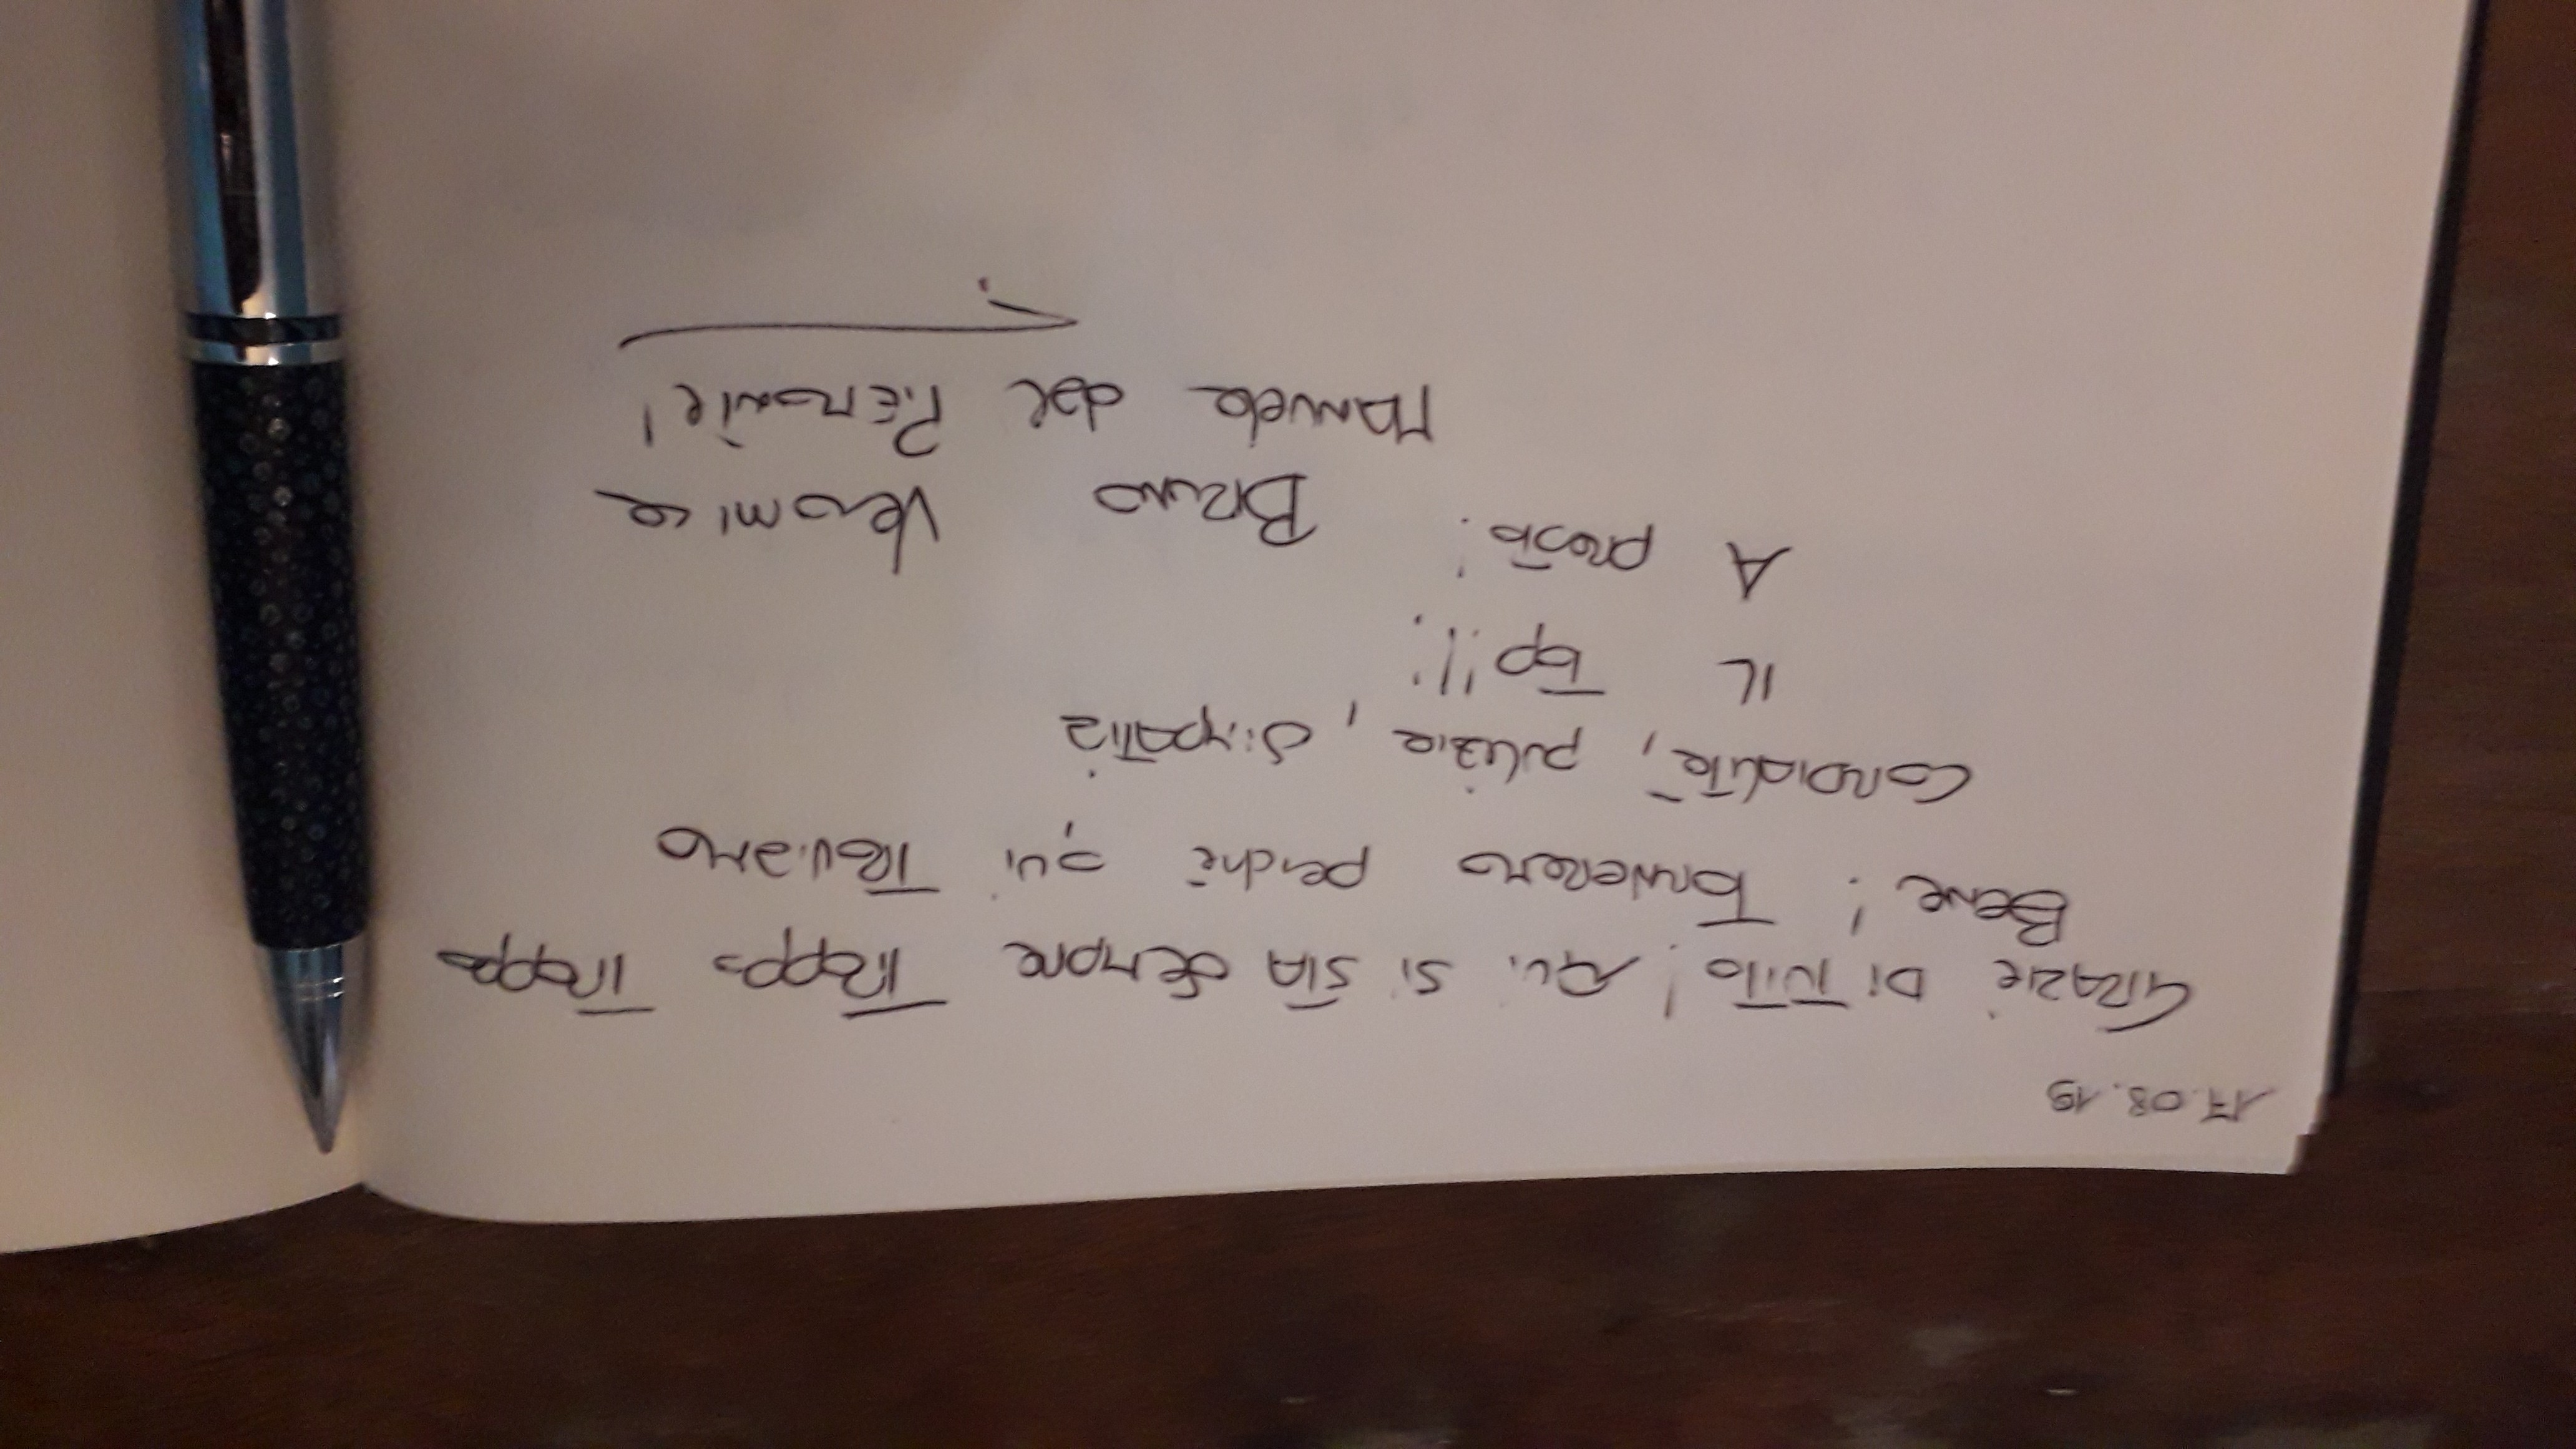 17.08.19
GRAZIE DI TUTTO! QUI SI STA SEMPRE TROPPO TROPPO
BENE! TORNEREMO perché qui TROVIAMO
CORDIALITÀ, pulizia, SIMPATIA
IL TOP!!!
A presto! BRUNO Veronica
MANUELA dal PIEMONTE!